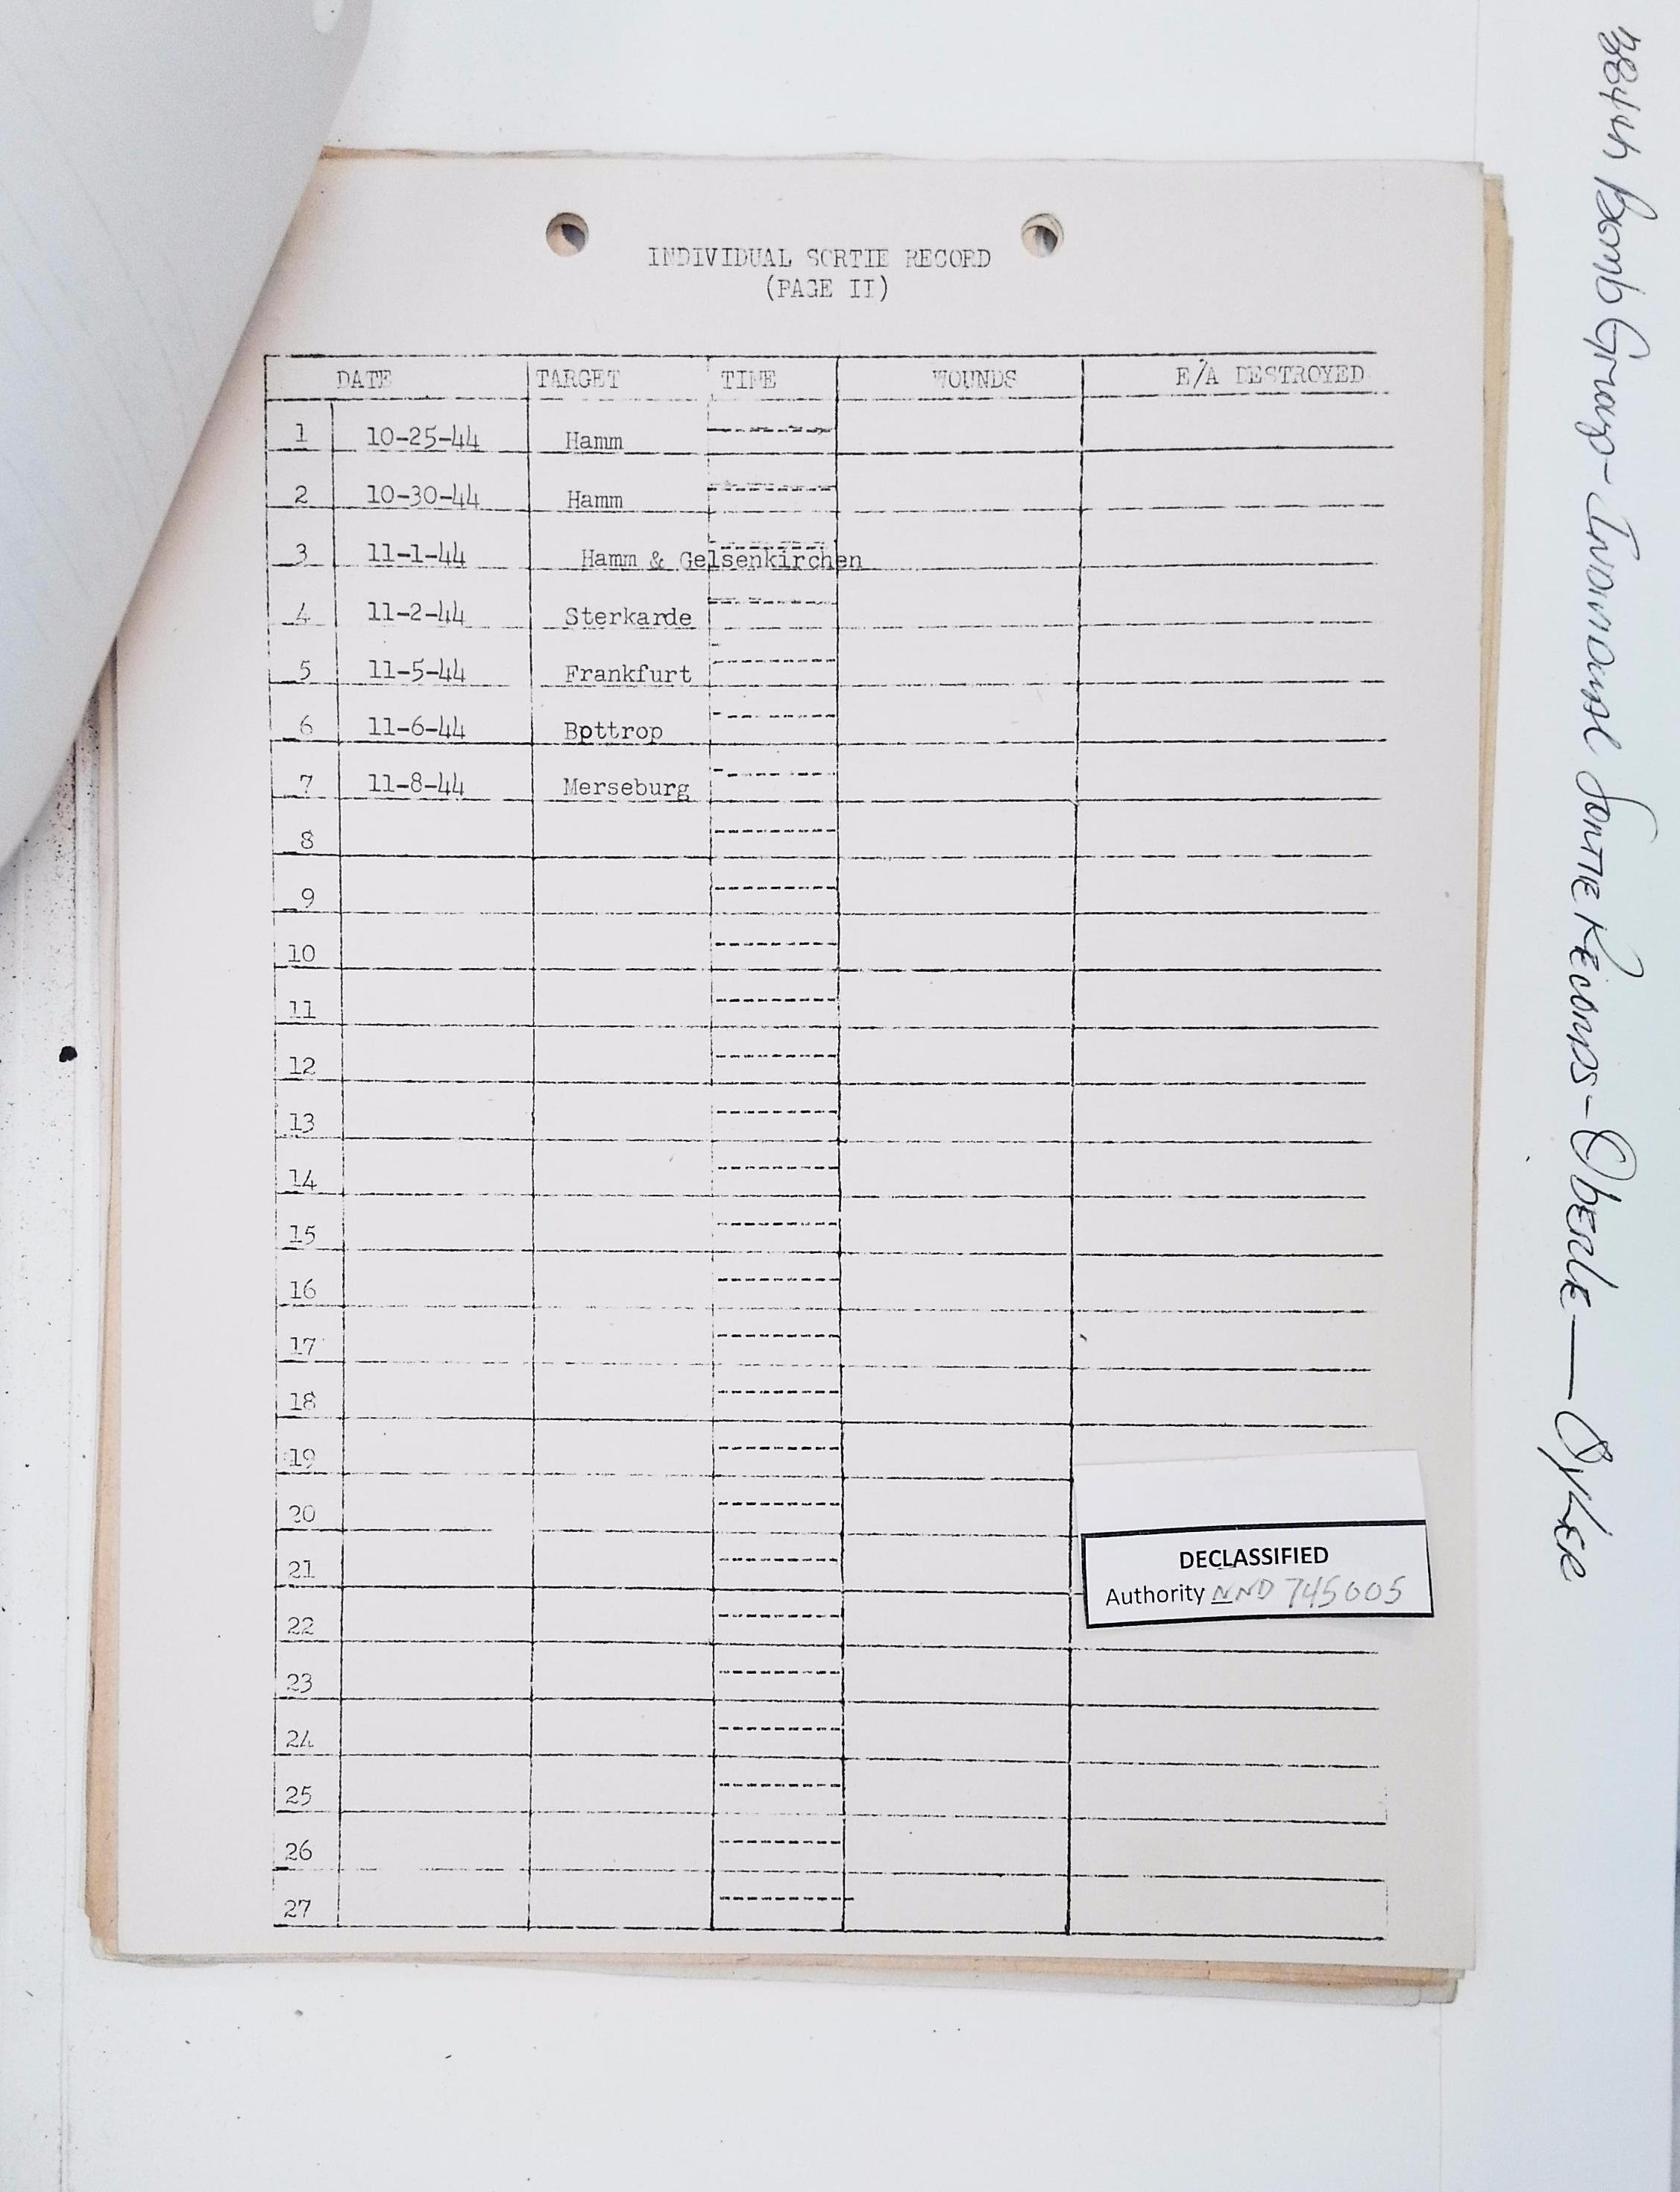 INDIVIDUAL SORTIE RECORD
(PAGE II)
DATE TARGET TIME WOUNDS E/A DESTROYED
1 10-25-44 Hamm
2 10-30-44 Hamm
3 11-1-44 Hamm & Gelsenkirchen
4 11-2-44 Sterkarde
5 11-5-44 Frankfurt
6 11-6-44 Bpttrop
7 11-8-44 Merseburg
8
9
10
11
12
13
14
15
16
17
18
19
20
21
22
23
24
25
26
27
DECLASSIFIED
Authority NND 745005
384th Bomb Group - Individual Sortie Records - Oberle — Oyler